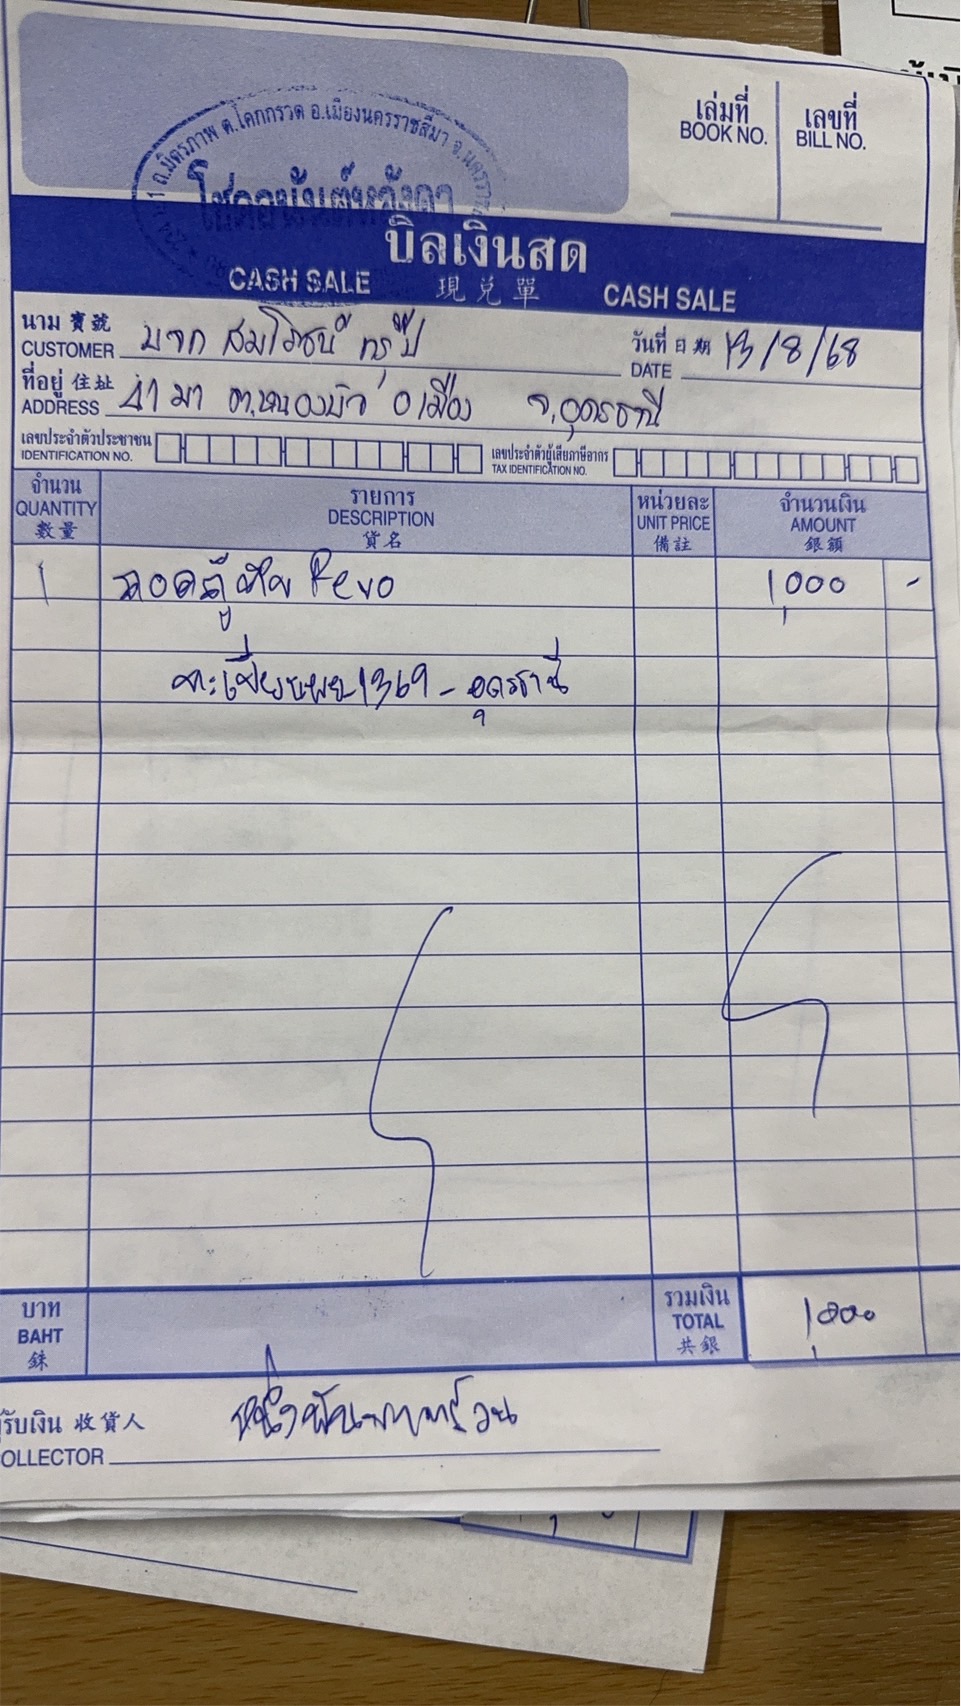 ถ.มิตรภาพ ต.โคกกรวด อ.เมืองนครราชสีมา จ.นครรา
เล่มที่ เลขที่
BOOK NO. BILL NO.
บิลเงินสด
CASH SALE 現兌單 CASH SALE
นาม 寶號 วันที่ 日期
CUSTOMER บจก สมโภชน์ กรุ๊ป DATE 13/8/68
ที่อยู่ 住址
ADDRESS 41 ม1 ต.หนองบัว อ เมือง จ.อุดรธานี
เลขประจำตัวประชาชน เลขประจำตัวผู้เสียภาษีอากร
IDENTIFICATION NO. TAX IDENTIFICATION NO.
จำนวน รายการ หน่วยละ จำนวนเงิน
QUANTITY DESCRIPTION UNIT PRICE AMOUNT
數量 貨名 備註 銀額
1 Revo 1,000 -
1369 - อุดรธานี
บาท รวมเงิน
BAHT TOTAL 1,000
銖 共銀
ผู้รับเงิน 收貨人 หนึ่งพันบาทถ้วน
COLLECTOR